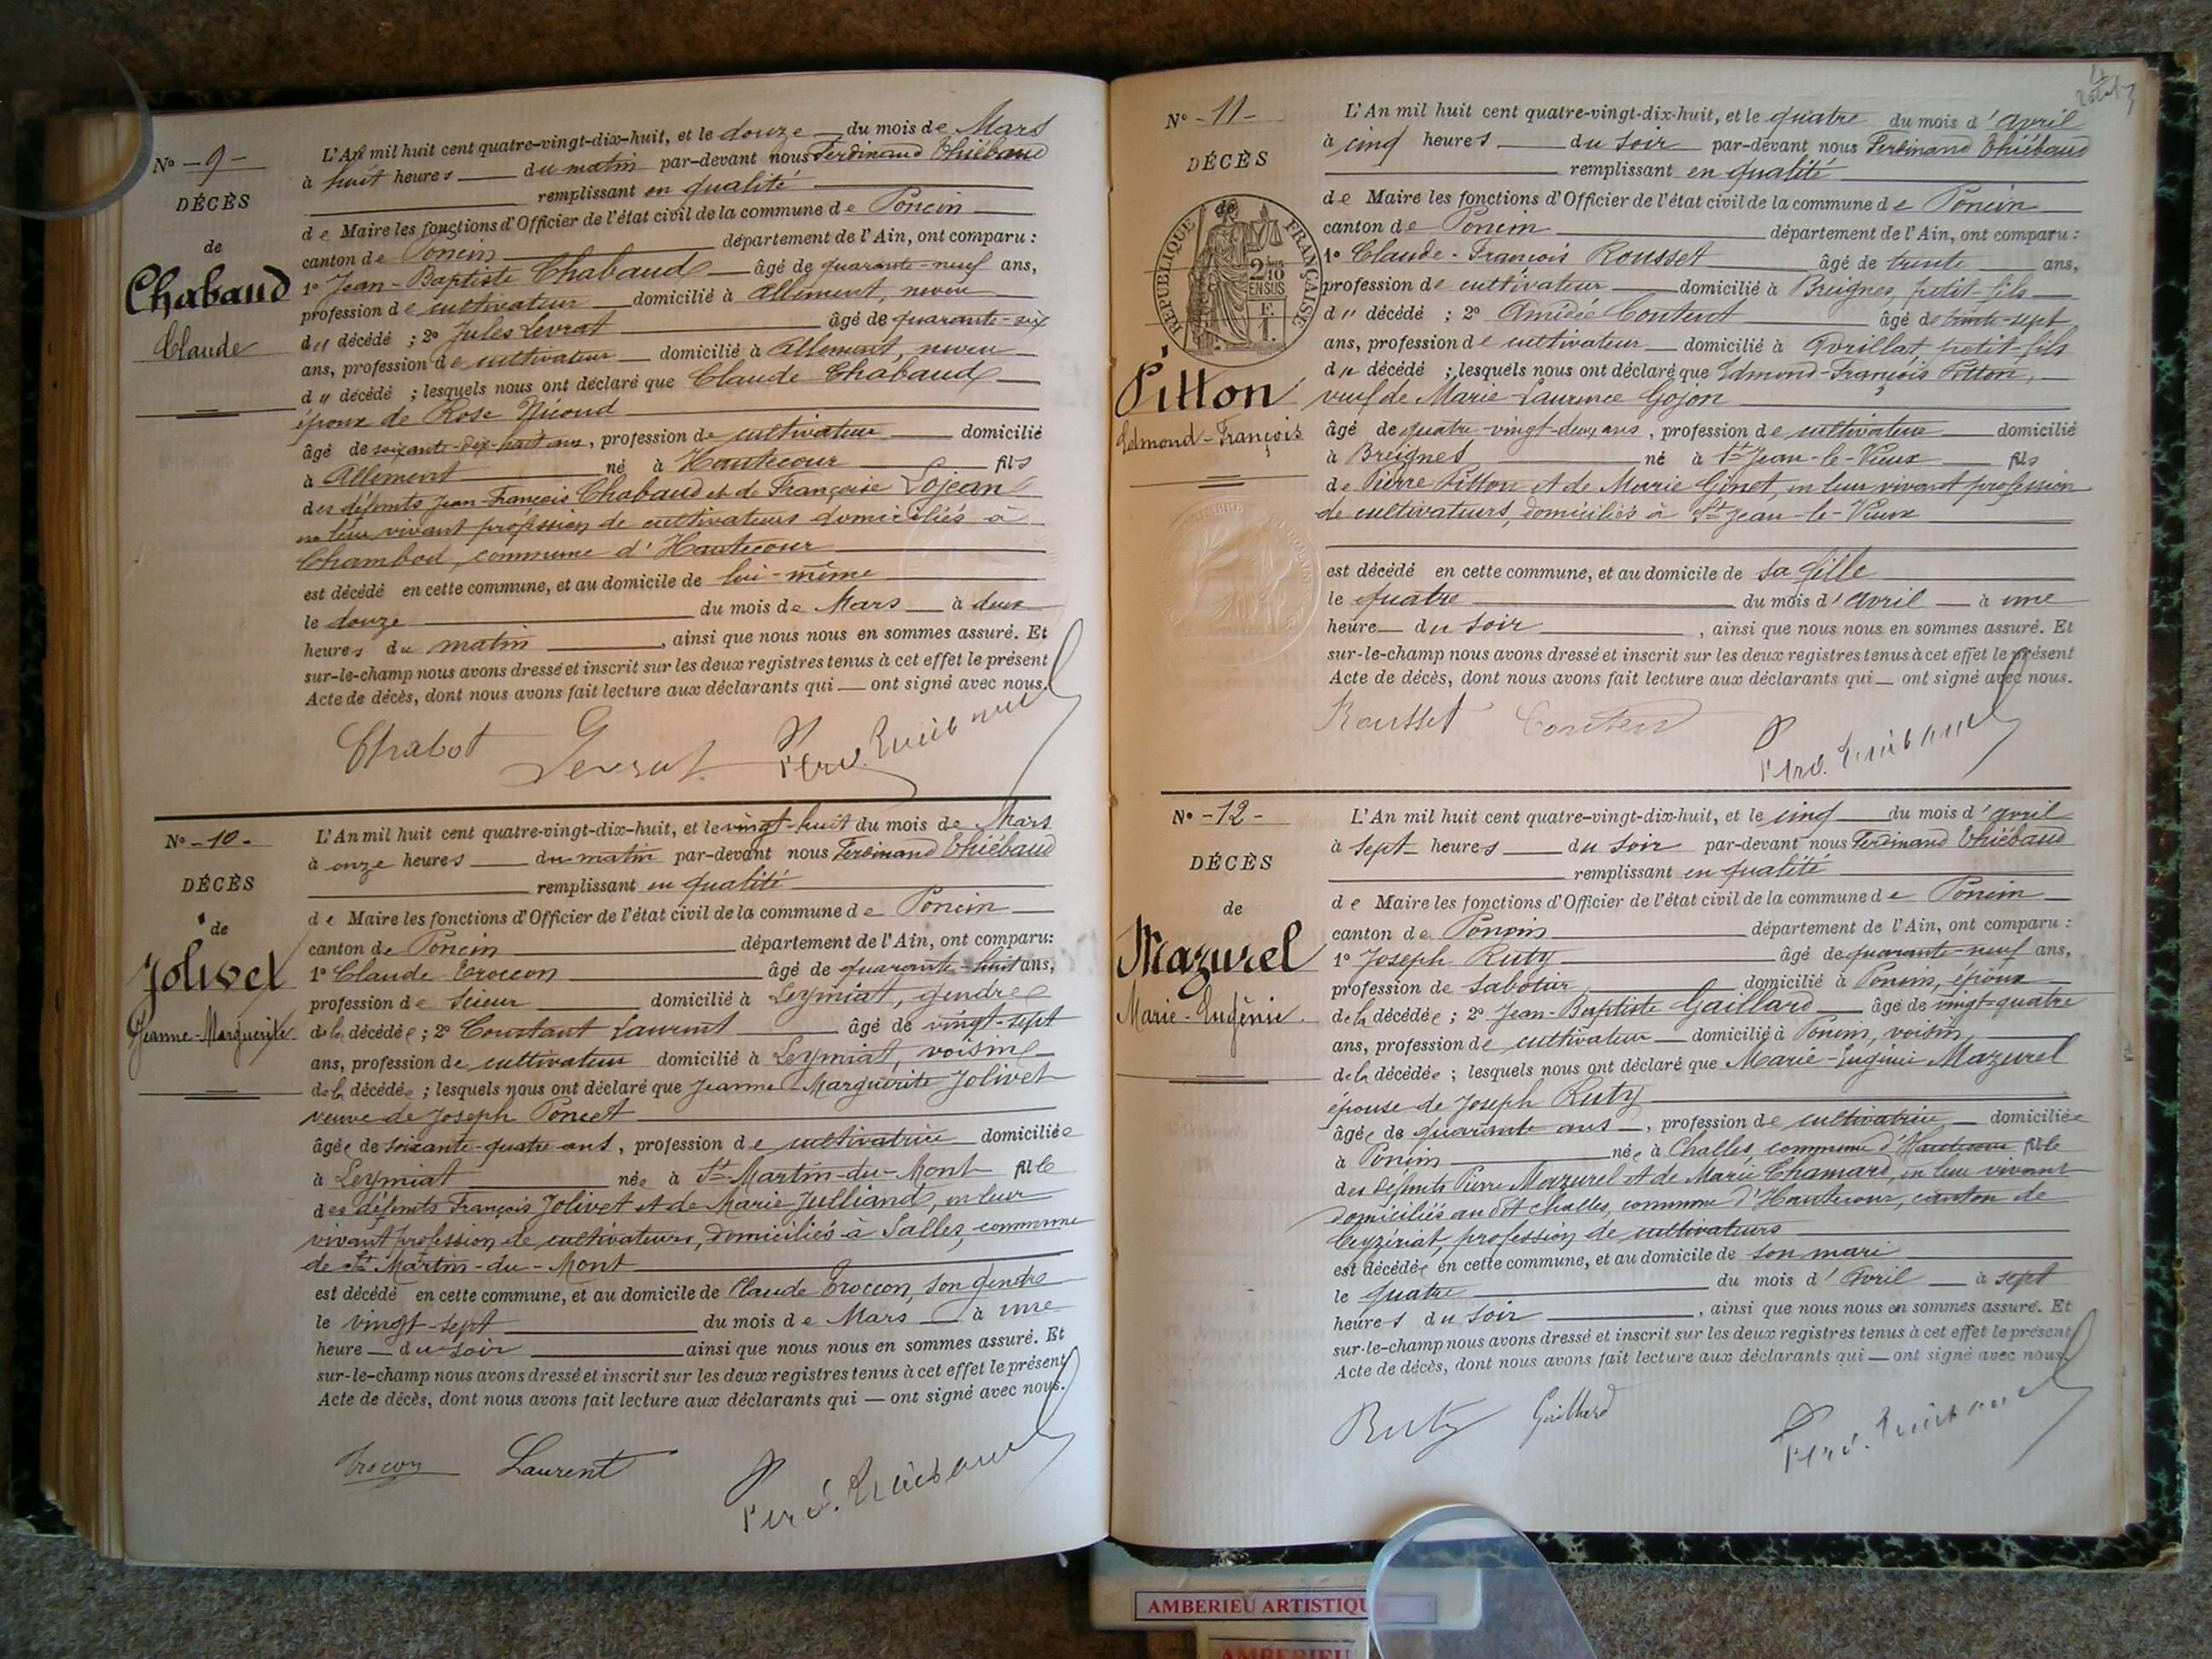 N° - 9 -
DÉCÈS
de
Chabaud
Claude
L'An mil huit cent quatre-vingt-dix-huit, et le douze du mois de Mars
à huit heures du matin par-devant nous Ferdinand Thiébaud
remplissant en qualité
de Maire les fonctions d'Officier de l'état civil de la commune de Poncin
canton de Poncin département de l'Ain, ont comparu :
1° Jean-Baptiste Chabaud âgé de quarante-neuf ans,
profession de cultivateur domicilié à Allement, neveu
du décédé ; 2° Jules Levrat âgé de quarante-six
ans, profession de cultivateur domicilié à Allement, neveu
du décédé ; lesquels nous ont déclaré que Claude Chabaud
époux de Rose Nicoud
âgé de soixante-dix-huit ans, profession de cultivateur domicilié
à Allement né à Hautecour fils
des défunts Jean-François Chabaud et de Françoise Lojean
en leur vivant profession de cultivateurs domiciliés à
Chambod, commune d'Hautecour
est décédé en cette commune, et au domicile de lui-même
le douze du mois de Mars à deux
heures du matin, ainsi que nous nous en sommes assuré. Et
sur-le-champ nous avons dressé et inscrit sur les deux registres tenus à cet effet le présent
Acte de décès, dont nous avons fait lecture aux déclarants qui ont signé avec nous.
Chabot Levrat Ferd. Thiébaud
N° - 10 -
DÉCÈS
de
Jolivet
Jeanne-Marguerite
L'An mil huit cent quatre-vingt-dix-huit, et le vingt-huit du mois de Mars
à onze heures du matin par-devant nous Ferdinand Thiébaud
remplissant en qualité
de Maire les fonctions d'Officier de l'état civil de la commune de Poncin
canton de Poncin département de l'Ain, ont comparu:
1° Claude Troccon âgé de quarante-huit ans,
profession de scieur domicilié à Leymiat, gendre
de la décédée ; 2° Constant Laurent âgé de vingt-sept
ans, profession de cultivateur domicilié à Leymiat, voisin
de la décédée ; lesquels nous ont déclaré que Jeanne-Marguerite Jolivet
veuve de Joseph Poncet
âgée de soixante-quatre ans, profession de cultivatrice domiciliée
à Leymiat née à St-Martin-du-Mont fille
des défunts François Jolivet et de Marie Julliand, en leur
vivant profession de cultivateurs, domiciliés à Salles, commune
de St Martin-du-Mont
est décédé en cette commune, et au domicile de Claude Troccon, son gendre
le vingt-sept du mois de Mars à une
heure du soir ainsi que nous nous en sommes assuré. Et
sur-le-champ nous avons dressé et inscrit sur les deux registres tenus à cet effet le présent
Acte de décès, dont nous avons fait lecture aux déclarants qui — ont signé avec nous.
Trocon Laurent Ferd. Thiébaud
N° - 11 -
DÉCÈS
de
RÉPUBLIQUE FRANÇAISE
2/10 EN SUS
Pitton
Edmond-François
L'An mil huit cent quatre-vingt-dix-huit, et le quatre du mois d'avril
à cinq heures du soir par-devant nous Ferdinand Thiébaud
remplissant en qualité
de Maire les fonctions d'Officier de l'état civil de la commune de Poncin
canton de Poncin département de l'Ain, ont comparu :
1° Claude-François Rousset âgé de trente ans,
profession de cultivateur domicilié à Breignes, petit-fils
du décédé ; 2° Amédée Content âgé de trente-sept
ans, profession de cultivateur domicilié à Avrillat petit-fils
du décédé ; lesquels nous ont déclaré que Edmond-François Pitton,
veuf de Marie-Laurence Gojon
âgé de quatre-vingt-deux ans, profession de cultivateur domicilié
à Breignes né à St-Jean-le-Vieux fils
de Pierre Pitton et de Marie Ginet, en leur vivant profession
de cultivateurs, domiciliés à St-Jean-le-Vieux
est décédé en cette commune, et au domicile de sa fille
le quatre du mois d'avril à une
heure du soir, ainsi que nous nous en sommes assuré. Et
sur-le-champ nous avons dressé et inscrit sur les deux registres tenus à cet effet le présent
Acte de décès, dont nous avons fait lecture aux déclarants qui — ont signé avec nous.
Rousset Contend Ferd. Thiébaud
N° - 12 -
DÉCÈS
de
Mazurel
Marie-Eugénie
L'An mil huit cent quatre-vingt-dix-huit, et le cinq du mois d'avril
à sept heures du soir par-devant nous Ferdinand Thiébaud
remplissant en qualité
de Maire les fonctions d'Officier de l'état civil de la commune de Poncin
canton de Poncin département de l'Ain, ont comparu :
1° Joseph Ruty âgé de quarante-neuf ans,
profession de sabotier domicilié à Poncin, époux
de la décédée ; 2° Jean-Baptiste Gaillard âgé de vingt-quatre
ans, profession de cultivateur domicilié à Poncin, voisin
de la décédée ; lesquels nous ont déclaré que Marie-Eugénie Mazurel
épouse de Joseph Ruty
âgée de quarante ans, profession de cultivatrice domiciliée
à Poncin née à Challes, commune d'Hautecour fille
des défunts Pierre Mazurel et de Marie Chamard, en leur vivant
domiciliés au dit Challes, commune d'Hautecour, canton de
Ceyzériat, profession de cultivateurs
est décédée en cette commune, et au domicile de son mari
le quatre du mois d'avril à sept
heures du soir, ainsi que nous nous en sommes assuré. Et
sur-le-champ nous avons dressé et inscrit sur les deux registres tenus à cet effet le présent
Acte de décès, dont nous avons fait lecture aux déclarants qui — ont signé avec nous.
Ruty Gaillard Ferd. Thiébaud
AMBERIEU ARTISTIQU
AMBERIEU